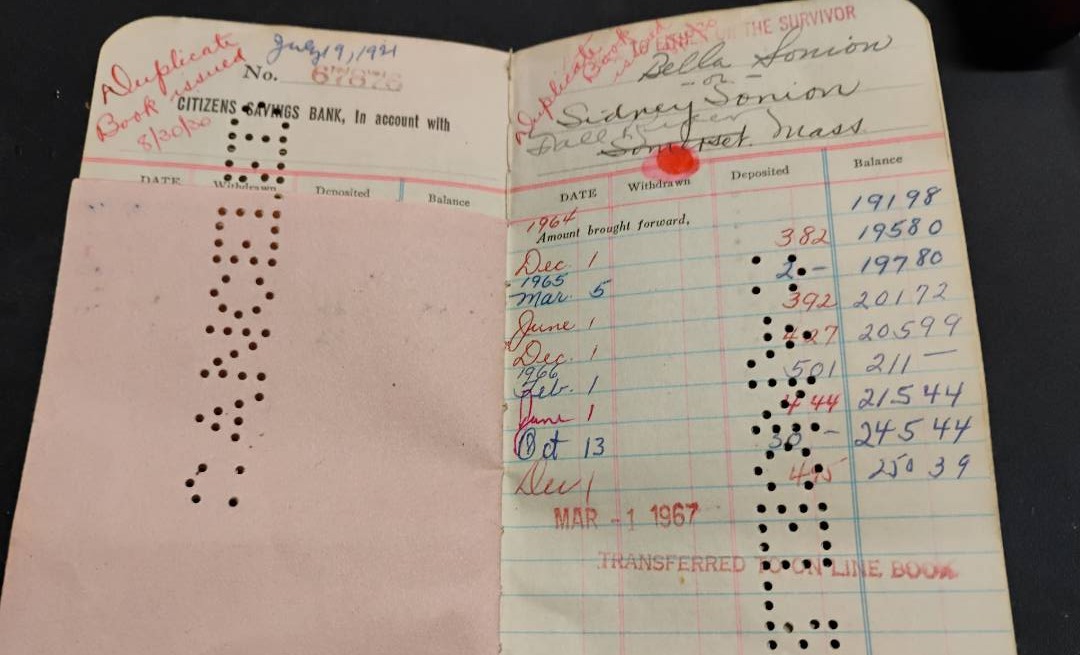 Duplicate
Book issued
8/30/30
July 19, 1921
No. 67876
CITIZENS SAVINGS BANK, In account with
DATE Withdrawn Deposited Balance
Duplicate
Book
issued
TO EITHER OR THE SURVIVOR
Bella Sonion
or
Sidney Sonion
Fall River
Somerset Mass.
DATE Withdrawn Deposited Balance
1964
Amount brought forward, 191 98
Dec. 1 3 82 195 80
1965
Mar. 5 2. - 197 80
June 1 3 92 201 72
Dec. 1 4 27 205 99
1966
Feb. 1 5 01 211 —
June 1 4 44 215 44
Oct 13 30 - 245 44
Dec 1 4 95 250 39
MAR -1 1967
TRANSFERRED TO ON LINE BOOK